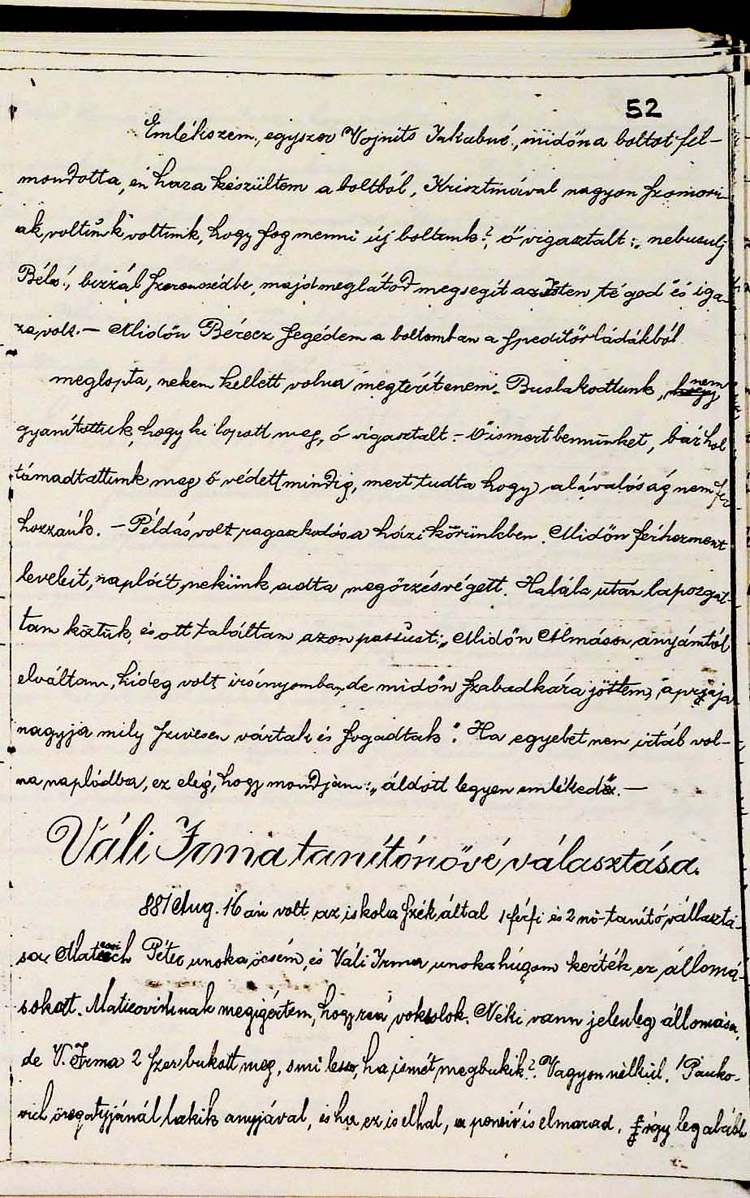 52
Emlékszem, egyszer Vojnits Jakabné, midőn a boltot fel-
mondotta, én haza készültem a boltból, Krisztinával nagyon szomorú-
ak voltunk voltunk, hogy fog menni új boltunk?, ő vigasztalt: „nebusulj
Béla!, bizzál szerencsédbe, majd meglátod megsegít az Isten téged" és iga-
za volt. — Midőn Bérecz segédem a boltomban a speditőr ládákból
meglopta, nekem kellett volna megterítenem. Buslakodtunk, nem
gyanítottuk, hogy ki lopott meg, ő vigasztalt – Ő ismert bennünket, bárhol
támadtattunk meg ő védett mindig, mert tudta hogy alávalóság nem fér
hozzánk. — Példás volt ragaszkodása házi körünkben. Midőn férhezment
leveleit, naplóit, nekünk adta megőrzés végett. Halála után lapozgat-
tam köztük, és ott találtam azon passust: „Midőn Almáson anyámtól
elváltam, hideg volt irányomban, de midőn Szabadkára jöttem, apraja
nagyja mily szivesen vártak és fogadtak". Ha egyebet nem irtál vol-
na naplódba, ez elég, hogy mondjam: „áldott legyen emléked". —
Váli Irma tanítónővé választása.
881 Aug. 16 án volt az iskola szék által 1 férfi és 2 nő-tanító választá-
sa Péter unoka öcsém, és Váli Irma unoka húgom kérték ez állomá-
sokat. Maticovichnak megigértem, hogy reá voksolok. Néki vann jelenleg állomása,
de V. Irma 2 szer bukott meg, s mi lessz, ha ismét megbukik? Vagyon nélkül, Pauko-
vich öregatyjánál lakik anyjával, és ha ez is elhal, a penzió is elmarad. Így legalább